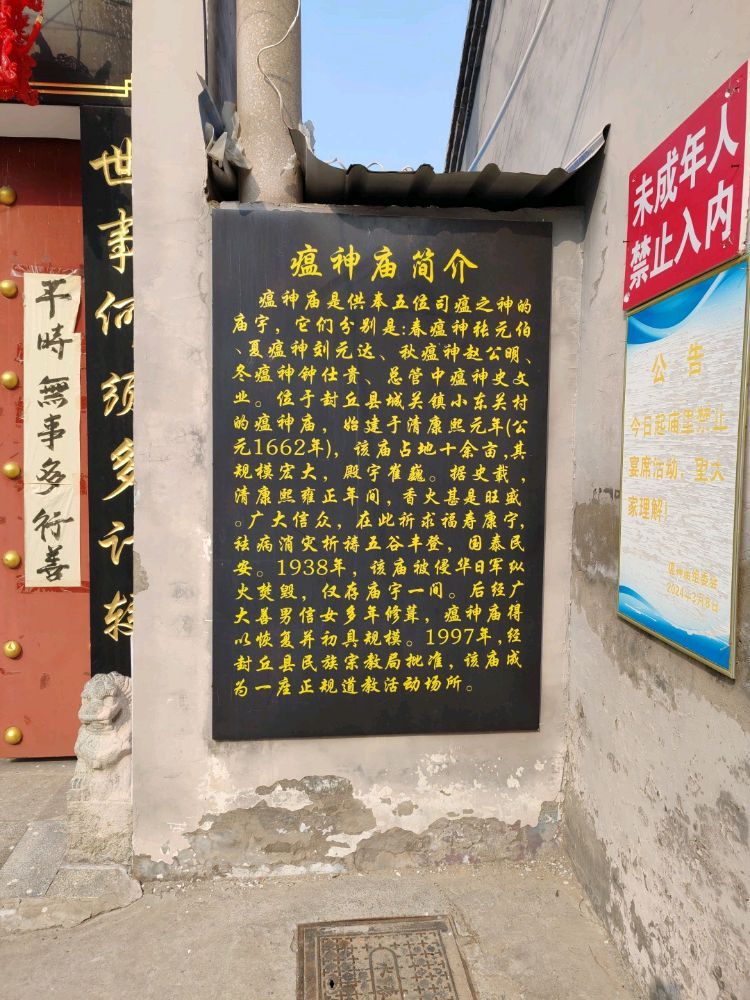 世事何须多计较
平時無事多行善
瘟神庙简介
瘟神庙是供奉五位司瘟之神的
庙宇，它们分别是:春瘟神张元伯
、夏瘟神刘元达、秋瘟神赵公明、
冬瘟神钟仕贵、总管中瘟神史文
业。位于封丘县城关镇小东关村
的瘟神庙，始建于清康熙元年(公
元1662年)，该庙占地十余亩,其
规模宏大，殿宇崔巍。据史载，
清康熙雍正年间，香火甚是旺盛
。广大信众，在此祈求福寿康宁,
祛病消灾祈祷五谷丰登，国泰民
安。1938年，该庙被侵华日军纵
火焚毁，仅存庙宇一间。后经广
大善男信女多年修葺，瘟神庙得
以恢复并初具规模。1997年,经
封丘县民族宗教局批准，该庙成
为一座正规道教活动场所。
未成年人
禁止入内
公告
今日起庙里禁止
宴席活动，望大
家理解!
2024年3月8日